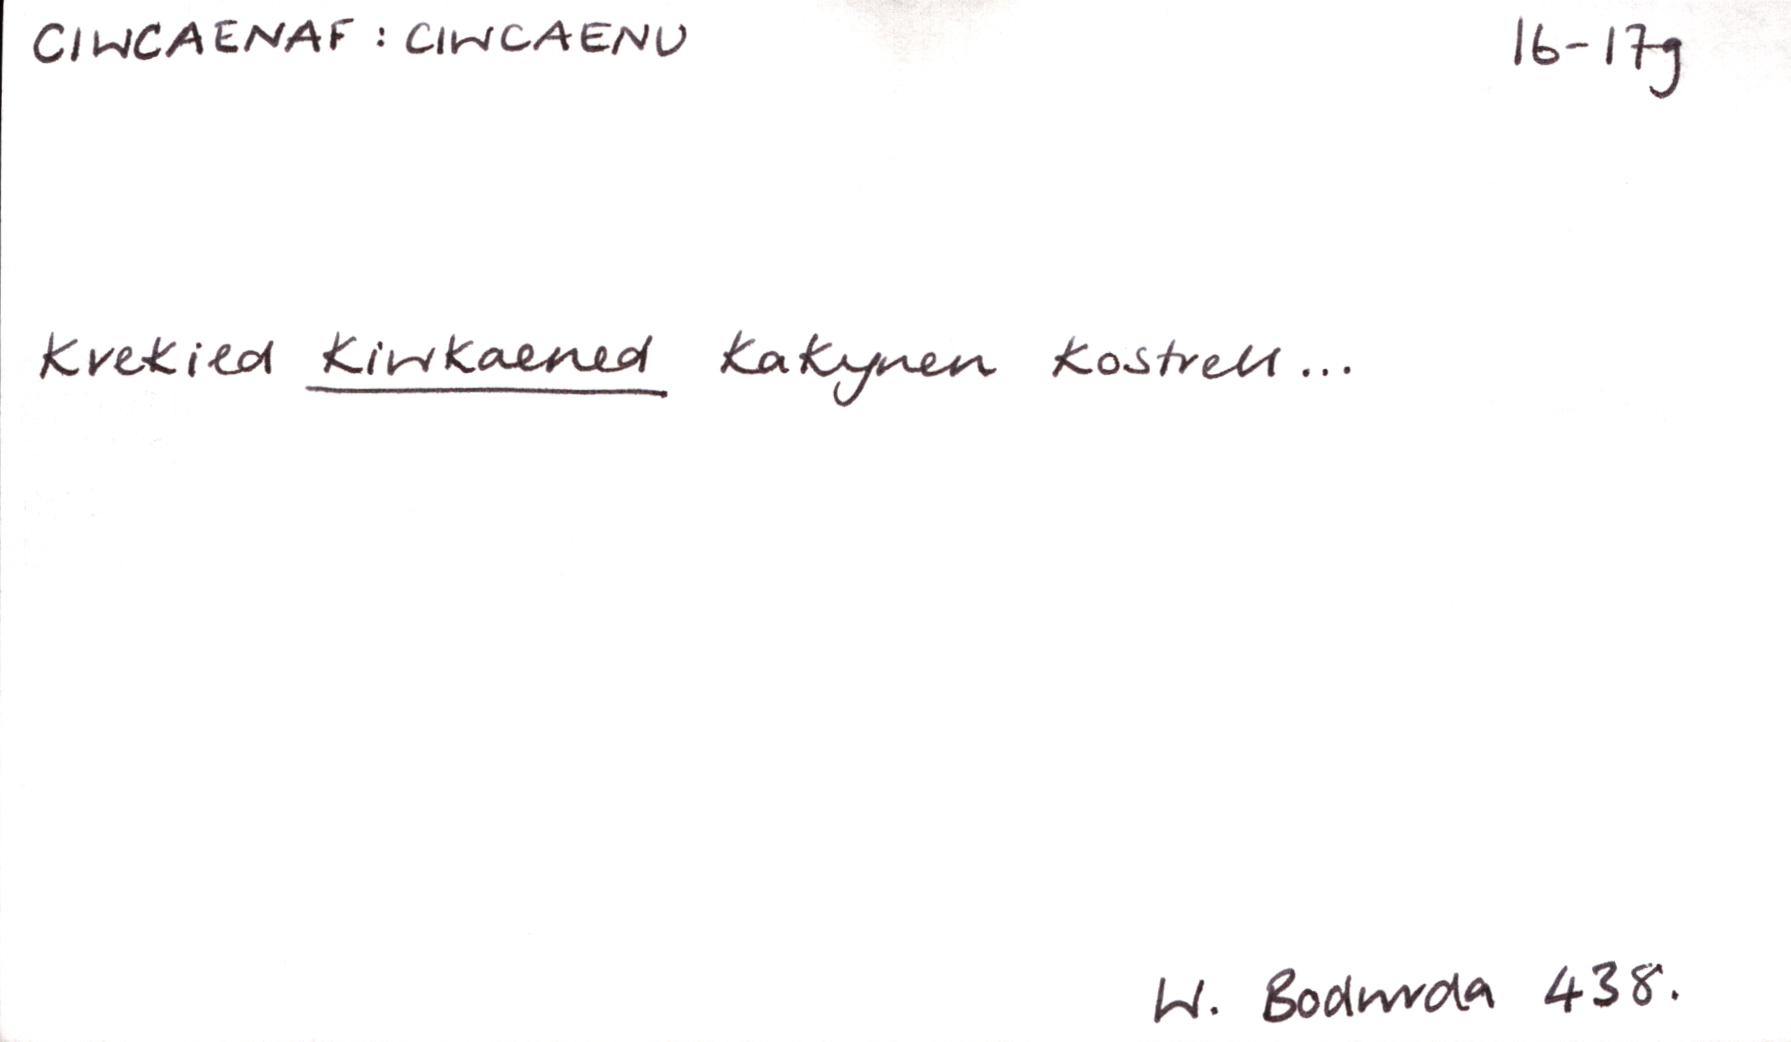 CIWCAENAF : CIWCAENU 16-17g
Krekied Kiwkaened Kakynen Kostrell...
W. Bodwrda 438.